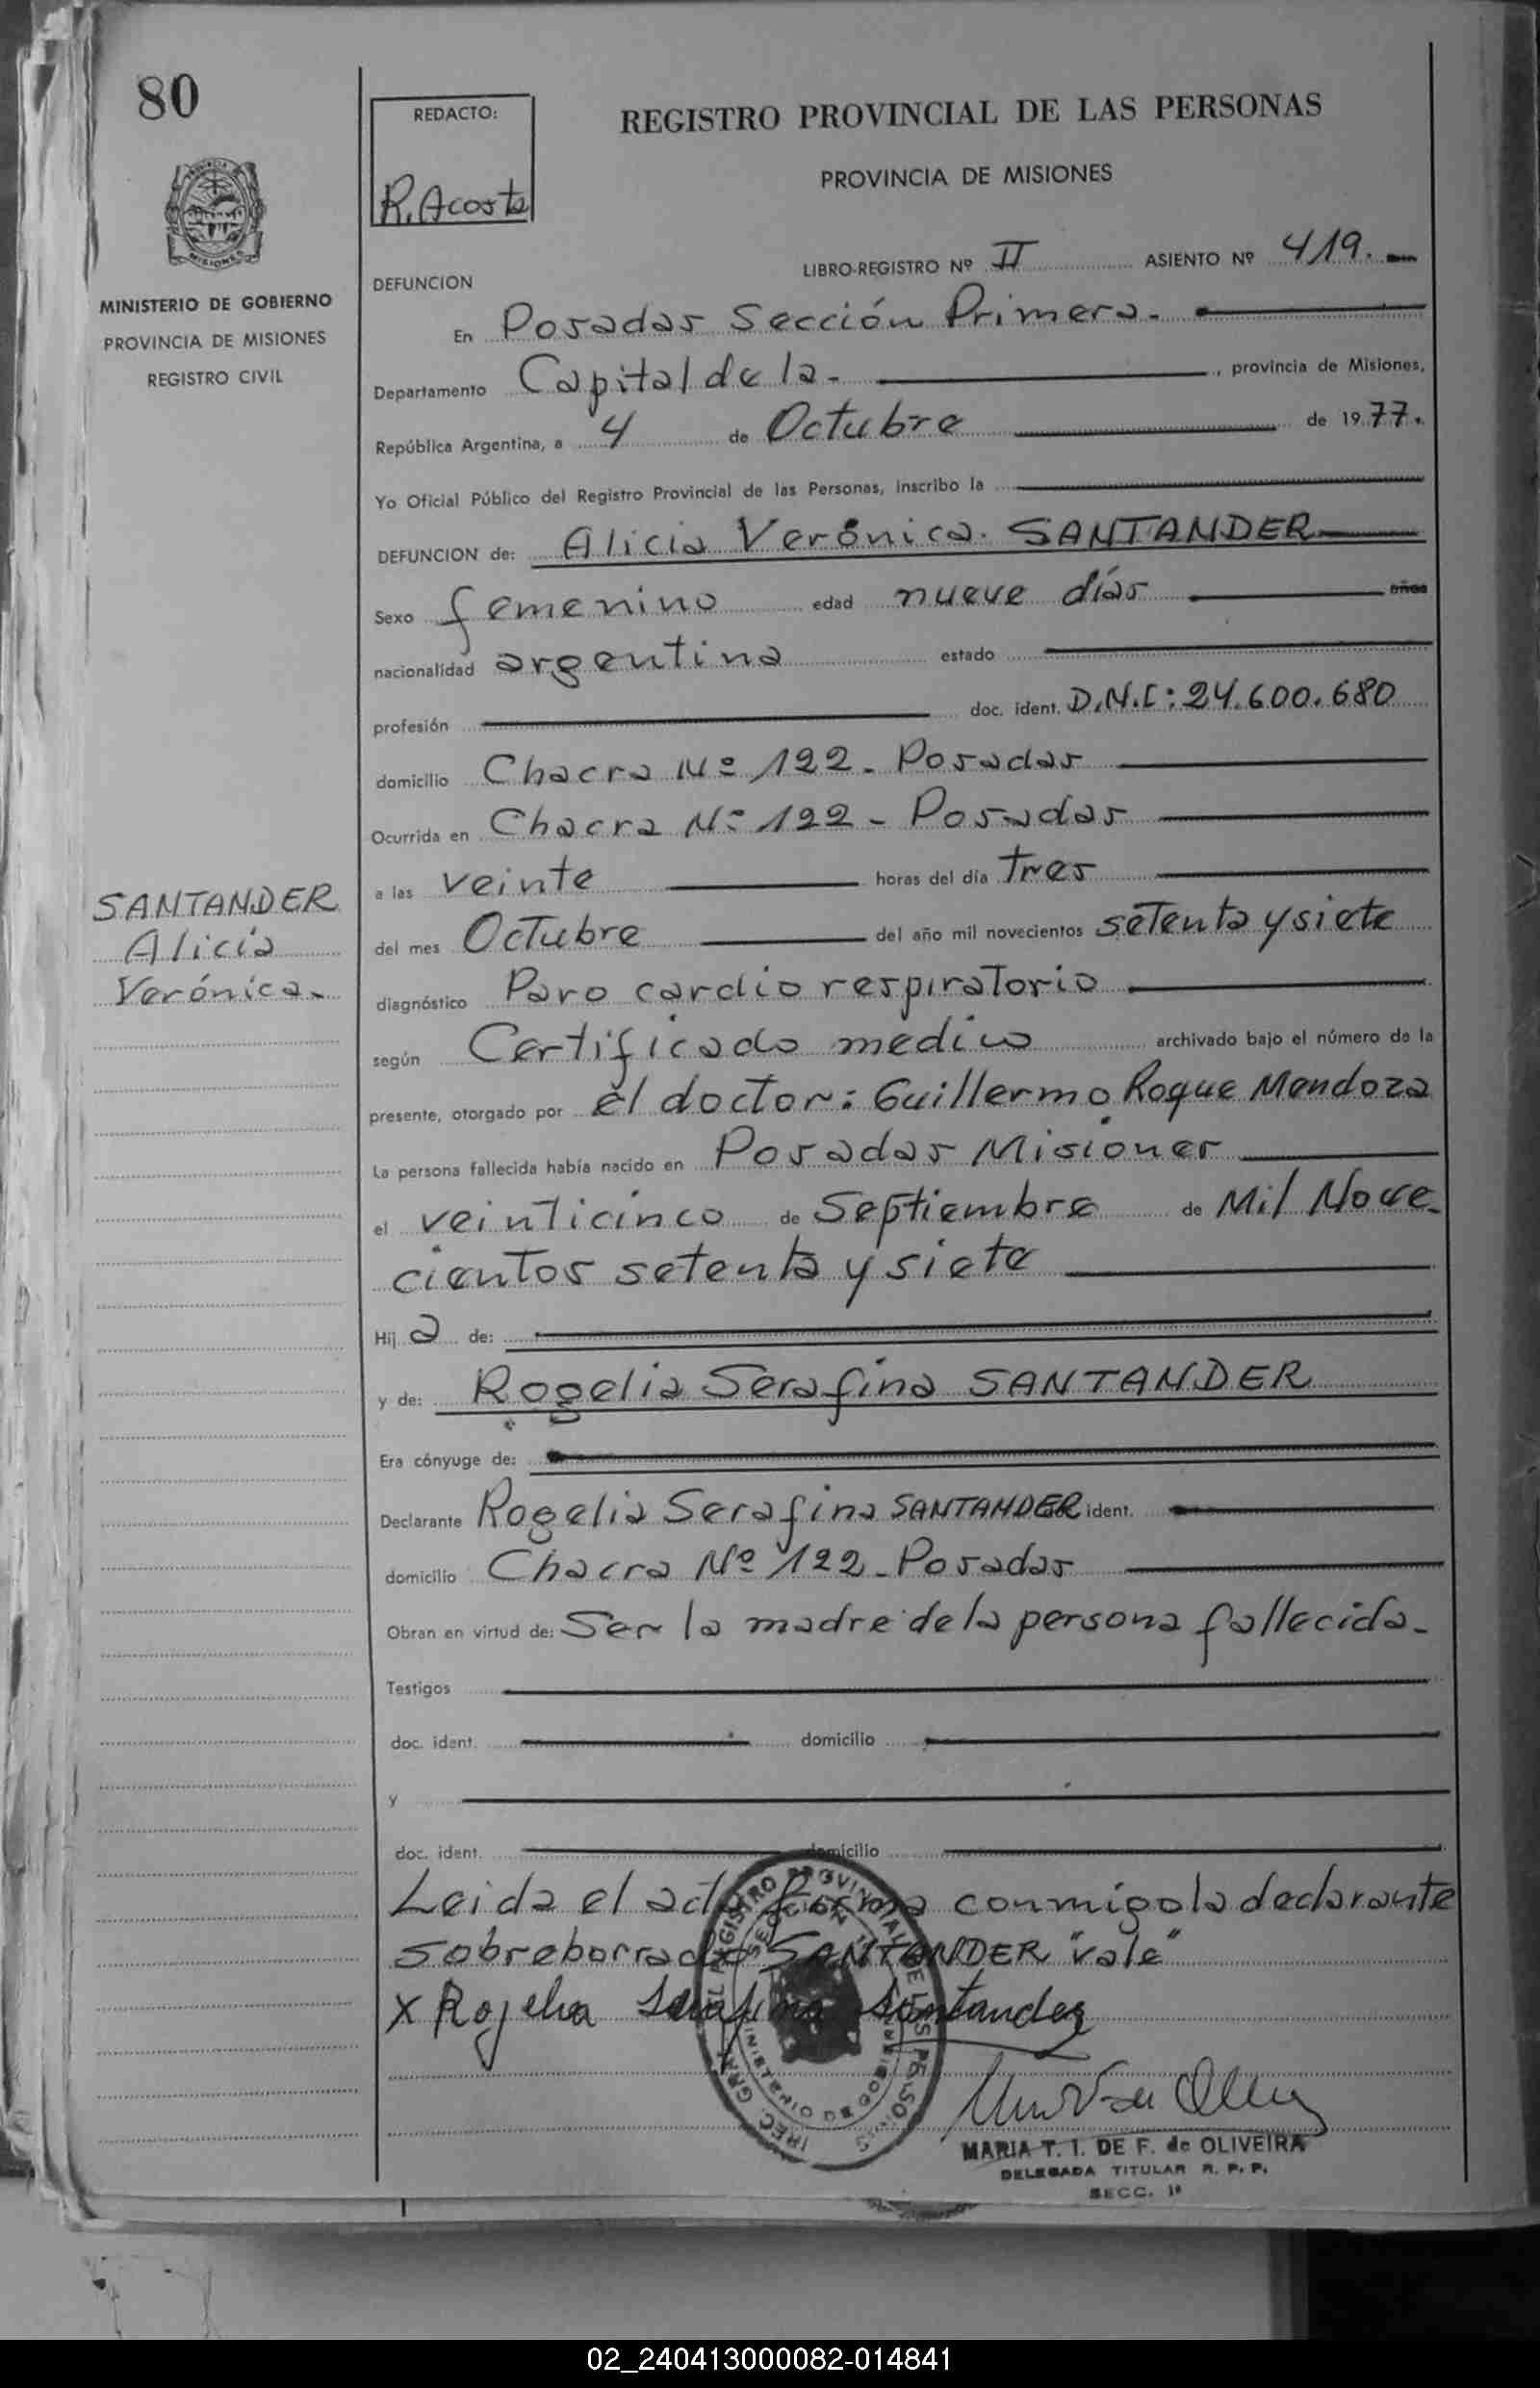 80
REDACTO:
R. Acosta
REGISTRO PROVINCIAL DE LAS PERSONAS
PROVINCIA DE MISIONES
MISIONES
MINISTERIO DE GOBIERNO
PROVINCIA DE MISIONES
REGISTRO CIVIL
LIBRO-REGISTRO Nº II ASIENTO Nº 419.
DEFUNCION
En Posadas Sección Primera.
Departamento Capital de la , provincia de Misiones,
República Argentina, a 4 de Octubre de 1977.
Yo Oficial Público del Registro Provincial de las Personas, inscribo la
DEFUNCION de: Alicia Verónica. SANTANDER
Sexo femenino edad nueve días años
nacionalidad argentina estado
profesión doc. ident. D.N.I: 24.600.680
domicilio Chacra Nº 122. Posadas
Ocurrida en Chacra Nº 122 - Posadas
SANTANDER
Alicia
Verónica.
a las veinte horas del día tres
del mes Octubre del año mil novecientos setenta y siete
diagnóstico Paro cardio respiratorio
según Certificado medico archivado bajo el número de la
presente, otorgado por el doctor: Guillermo Roque Mendoza
La persona fallecida había nacido en Posadas Misiones
el veinticinco de Septiembre de Mil Nove-
cientos setenta y siete
Hija de:
y de: Rogelia Serafina SANTANDER
Era cónyuge de:
Declarante Rogelia Serafina SANTANDER ident.
domicilio Chacra Nº 122 - Posadas
Obran en virtud de: Ser la madre de la persona fallecida-
Testigos
doc. ident. domicilio
y
doc. ident. domicilio
Leida el acta firma conmigo la declarante
sobreborrado SANTANDER "vale"
X Rogelia Serafina Santander
MARIA T. I. DE F. de OLIVEIRA
DELEGADA TITULAR R. P. P.
SECC. 1ª
02_240413000082-014841